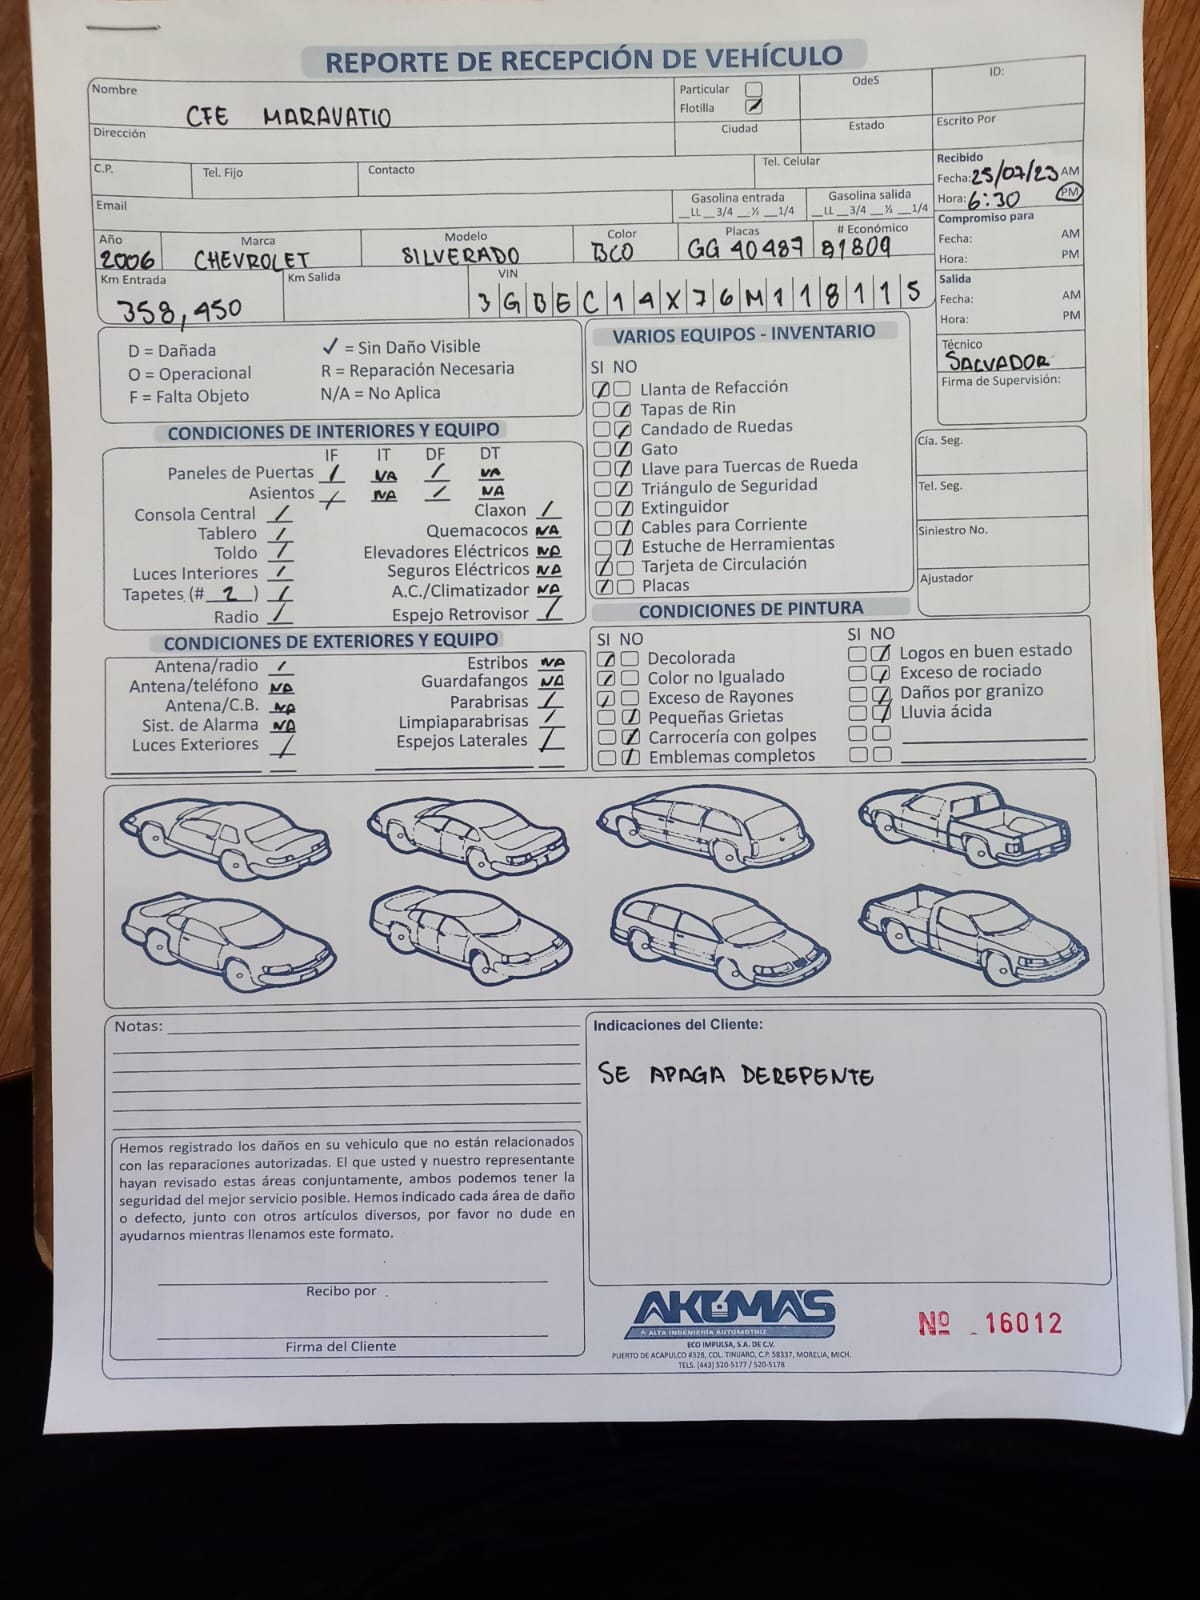 REPORTE DE RECEPCIÓN DE VEHÍCULO
Nombre
CFE MARAVATIO
Particular
Flotilla
OdeS
ID:
Dirección
Ciudad
Estado
Escrito Por
C.P.
Tel. Fijo
Contacto
Tel. Celular
Recibido
Fecha: 25/07/23 AM
Hora: 6:30 PM
Email
Gasolina entrada
__LL __3/4 __½ __1/4
Gasolina salida
__LL __3/4 __½ __1/4
Compromiso para
Fecha: AM
Hora: PM
Año
2006
Marca
CHEVROLET
Modelo
SILVERADO
Color
BCO
Placas
GG 40487
# Económico
81809
Km Entrada
358,450
Km Salida
VIN
3GBEC14X76M118115
Salida
Fecha: AM
Hora: PM
Técnico
SALVADOR
Firma de Supervisión:
D = Dañada
✓ = Sin Daño Visible
O = Operacional
R = Reparación Necesaria
F = Falta Objeto
N/A = No Aplica
CONDICIONES DE INTERIORES Y EQUIPO
IF IT DF DT
Paneles de Puertas / NA / NA
Asientos / NA / NA
Consola Central /
Tablero /
Toldo /
Luces Interiores /
Tapetes (# 2 ) /
Radio /
Claxon /
Quemacocos NA
Elevadores Eléctricos NA
Seguros Eléctricos NA
A.C./Climatizador NA
Espejo Retrovisor /
CONDICIONES DE EXTERIORES Y EQUIPO
Antena/radio /
Antena/teléfono NA
Antena/C.B. NA
Sist. de Alarma NA
Luces Exteriores /
Estribos NA
Guardafangos NA
Parabrisas /
Limpiaparabrisas /
Espejos Laterales /
VARIOS EQUIPOS - INVENTARIO
SI NO
Llanta de Refacción
Tapas de Rin
Candado de Ruedas
Gato
Llave para Tuercas de Rueda
Triángulo de Seguridad
Extinguidor
Cables para Corriente
Estuche de Herramientas
Tarjeta de Circulación
Placas
Cía. Seg.
Tel. Seg.
Siniestro No.
Ajustador
CONDICIONES DE PINTURA
SI NO
Decolorada
Color no Igualado
Exceso de Rayones
Pequeñas Grietas
Carrocería con golpes
Emblemas completos
SI NO
Logos en buen estado
Exceso de rociado
Daños por granizo
Lluvia ácida
Notas:
Indicaciones del Cliente:
SE APAGA DEREPENTE
Hemos registrado los daños en su vehiculo que no están relacionados
con las reparaciones autorizadas. El que usted y nuestro representante
hayan revisado estas áreas conjuntamente, ambos podemos tener la
seguridad del mejor servicio posible. Hemos indicado cada área de daño
o defecto, junto con otros artículos diversos, por favor no dude en
ayudarnos mientras llenamos este formato.
Recibo por
Firma del Cliente
AKUMAS
A ALTA INGENIERÍA AUTOMOTRIZ
ECO IMPULSA, S.A. DE C.V.
PUERTO DE ACAPULCO #328, COL. TINIJARO, C.P. 58337, MORELIA, MICH.
TELS. (443) 520-5177 / 520-5178
Nº 16012